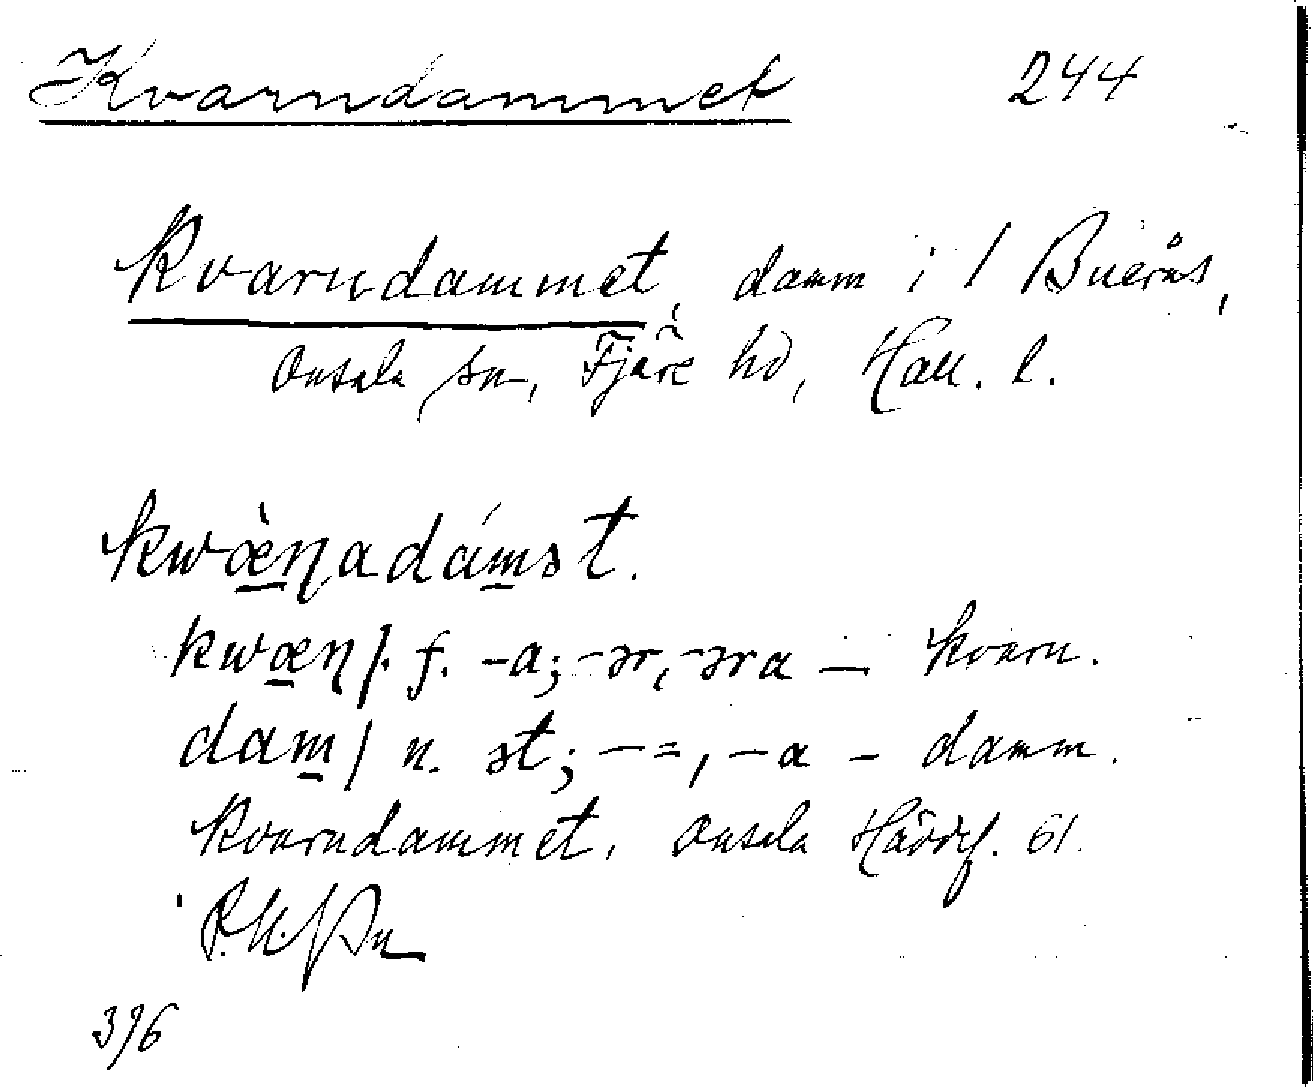 Kvarndammet 244
Kvarndammet, damm i 1 Buerås,
Onsala sn, Fjäre hd, Hall. l.
kwæ̀ṉadám̱ət.
kwæ̱n/. f. -a; -ər, -əra — kvarn.
dam̱/ n. ət; -=, -a - damm.
Kvarndammet, Onsala 61.
396